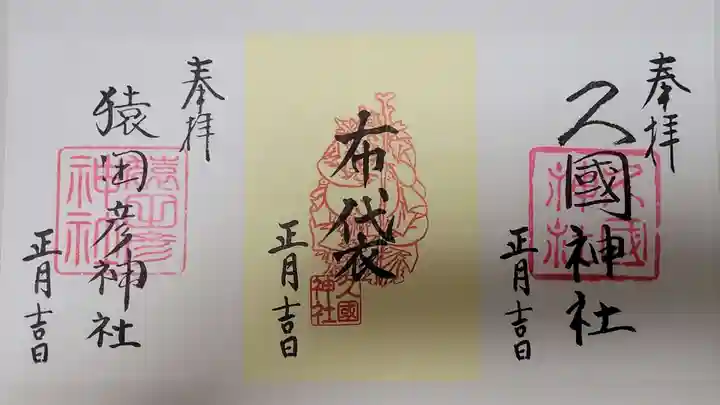 奉拝
久國神社
久國神社
正月吉日
布袋
久國神社
正月吉日
奉拝
猿田彦神社
猿田彦神社
正月吉日